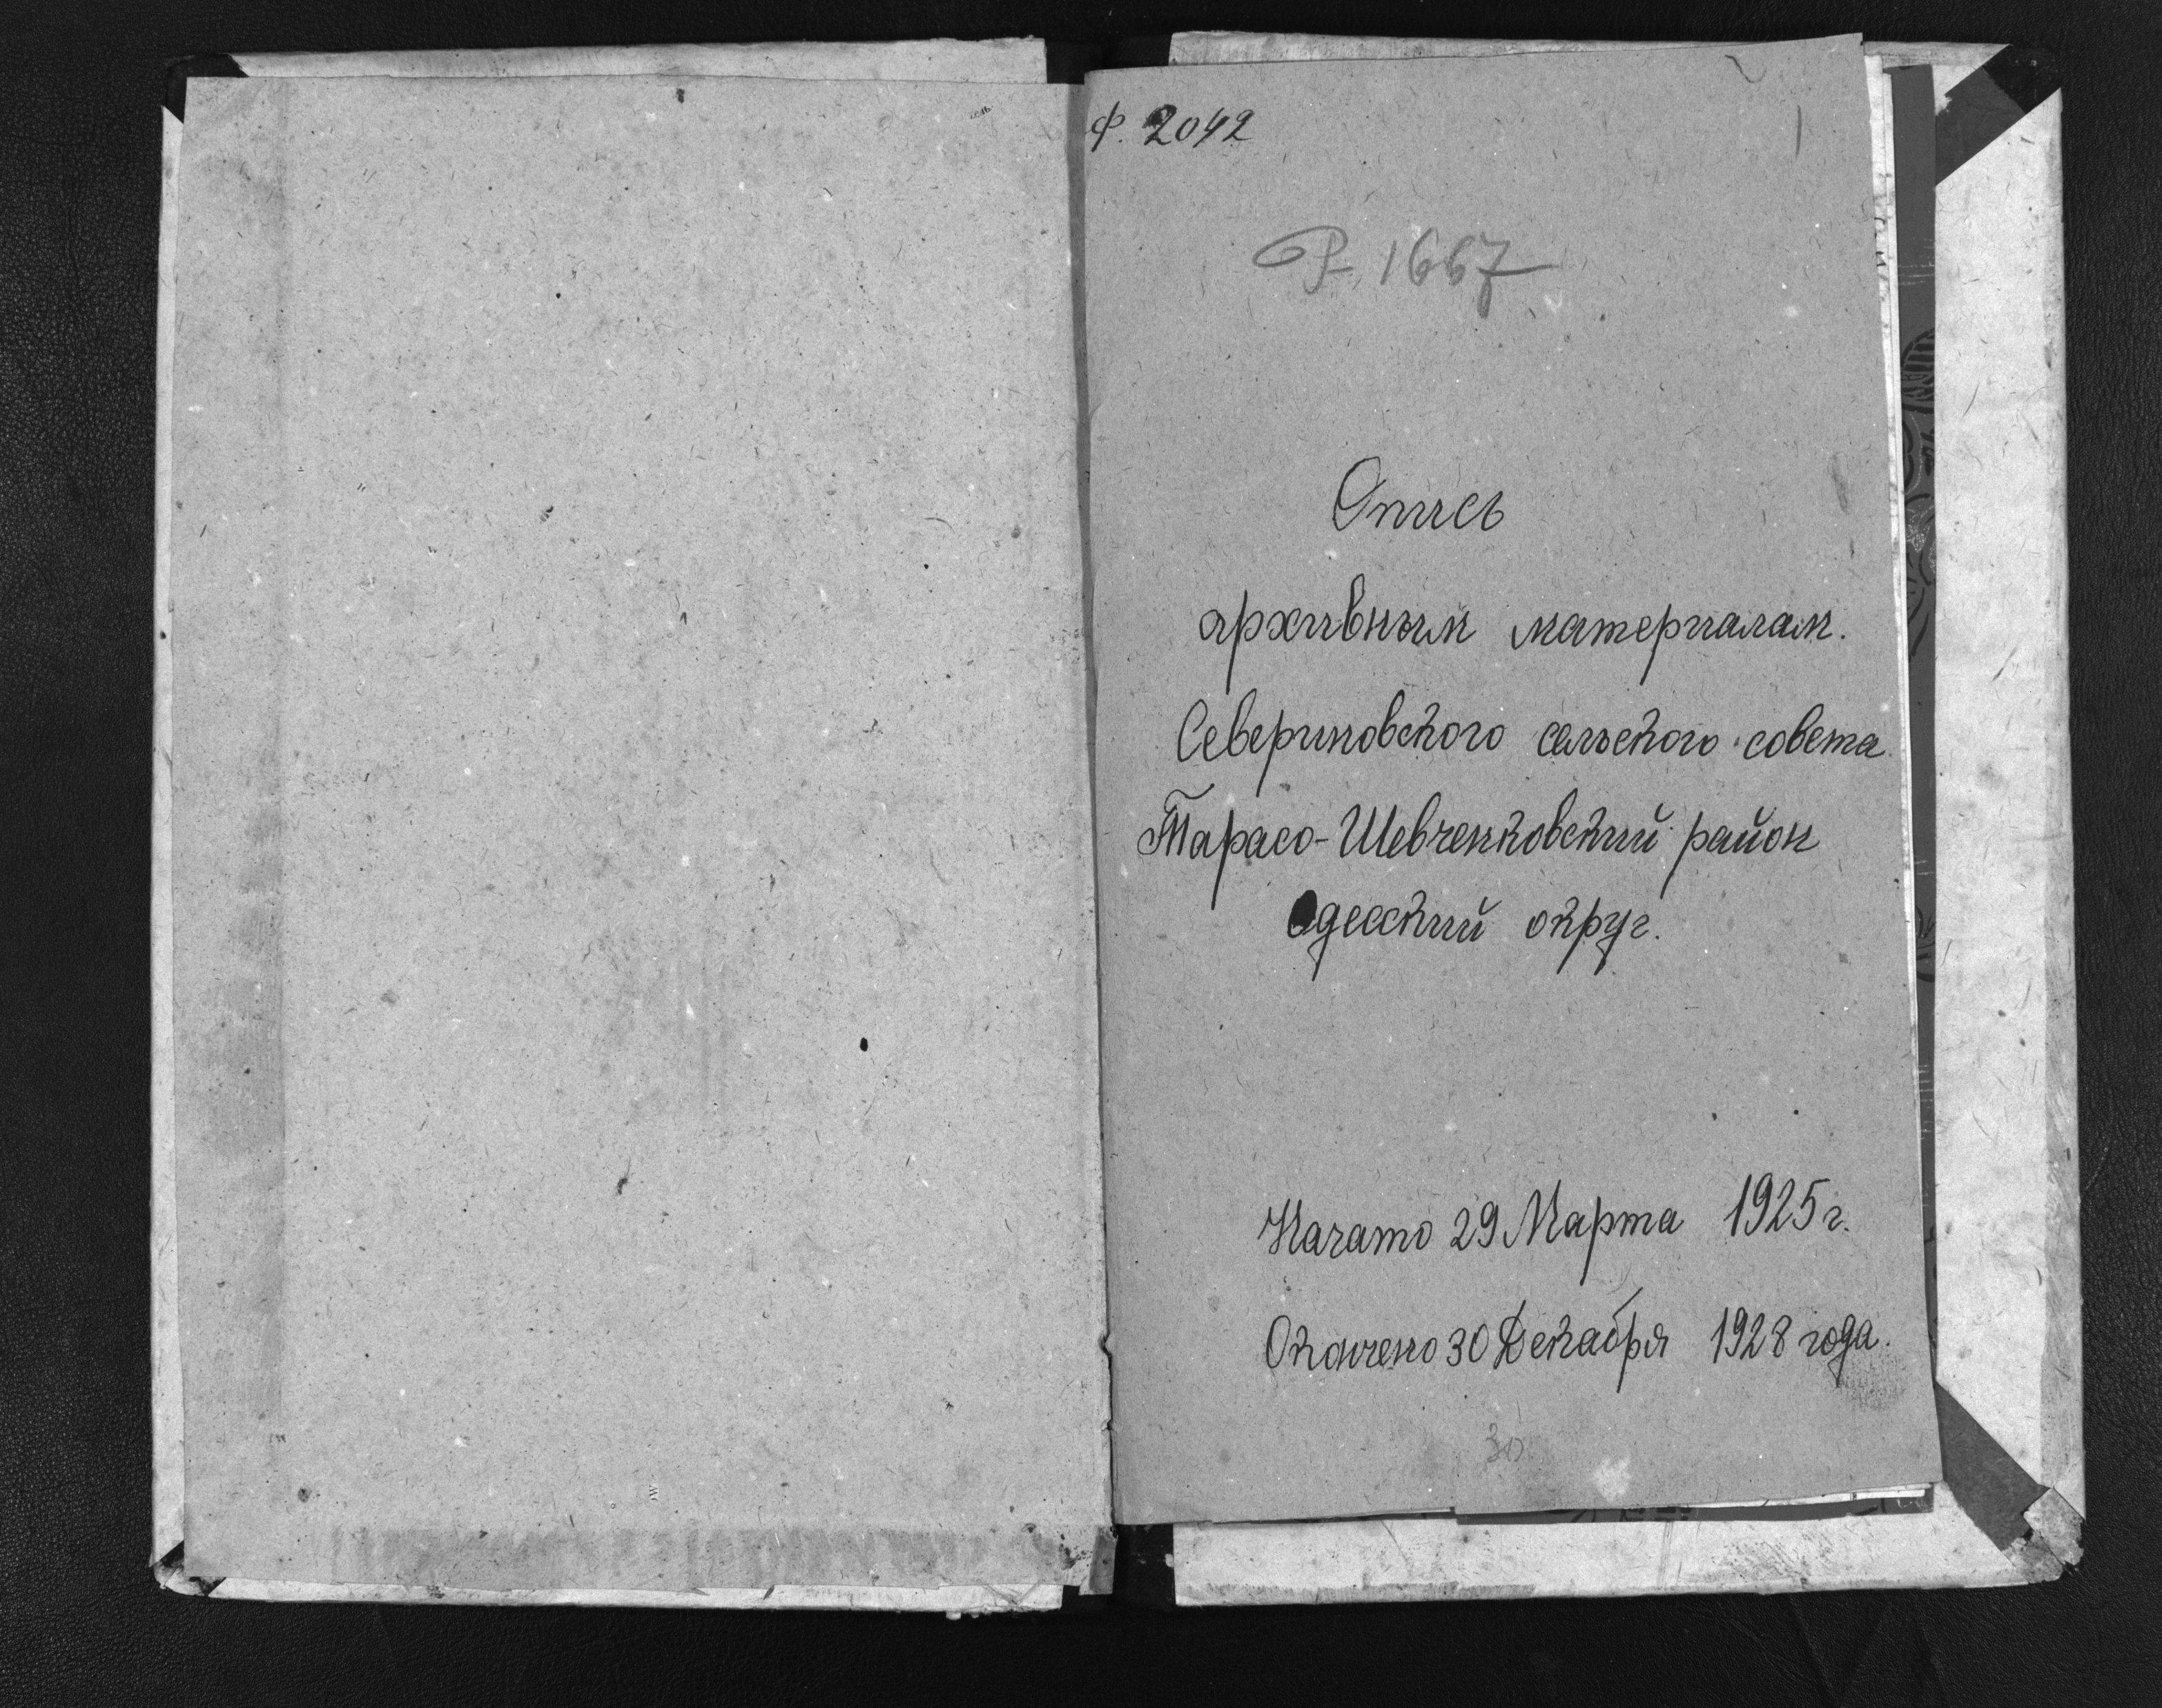 Ф. 2042
1
Р-1667
Опись
архивным материалам.
Севериновского сельского совета
Тарасо-Шевченковский район
Одесский округ.
Начато 29 Марта 1925 г.
Окончено 30 Декабря 1928 года.
30